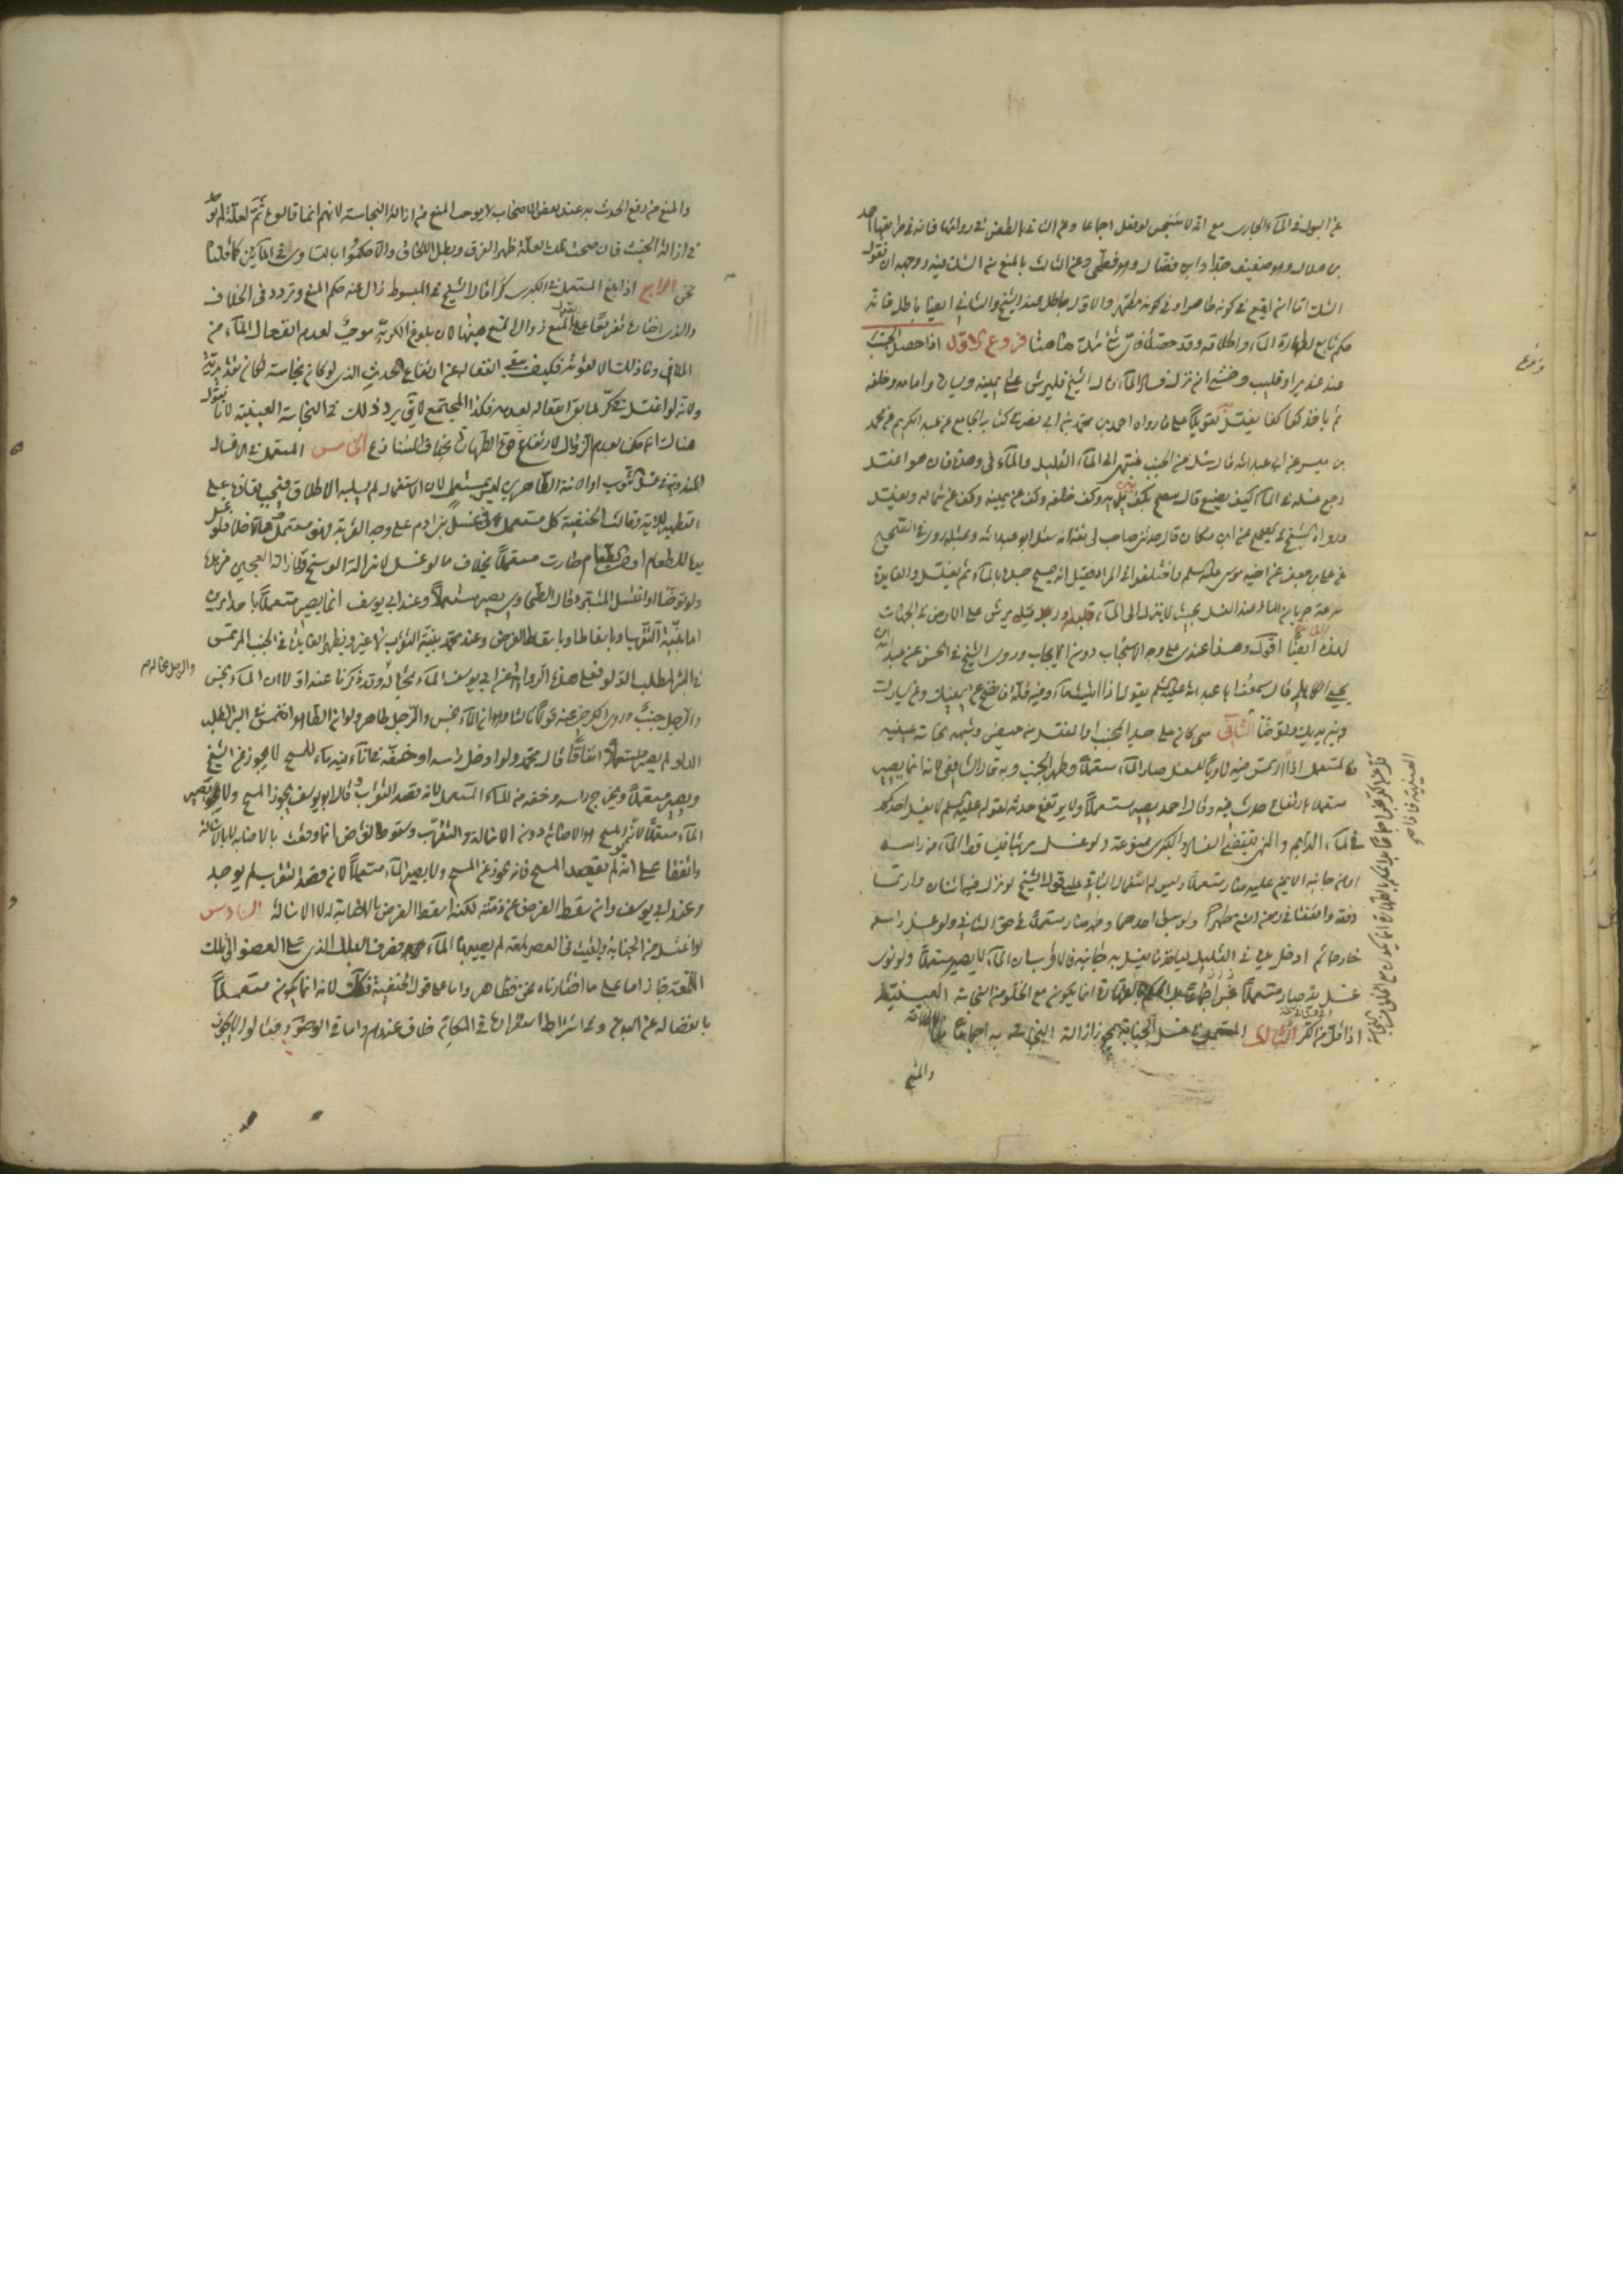 عن البول في الماء الجاري مع انه لا ينجس لو فعل اجماعا وعن الثاني بالطعن في روايتها فانه في طريقها احمد
بن هلال وهو ضعيف جدا وابن فضال وهو فطحي وعن الثالث بالمنع من الشك فيه ووجهه ان نقول
الشك اما ان يقع في كونه طاهرا او في كونه مطهرا والاول باطل عند الشيخ والثاني ايضا باطل فانه
حكم تابع لطهارة الماء واطلاقه وقد حصلا فاي شك هاهنا فروع الاول اذا حصل الجنب
عند غدير او قليب وخشي ان نزل فساد الماء قال الشيخ فليرش على يمينه ويساره وامامه وخلفه
ثم ياخذ كفا كفا يغتسل به تعويلا على ما رواه احمد بن محمد بن ابي نصر في كتاب الجامع عن عبد الكريم عن محمد
بن ميسر عن ابي عبد الله قال سئل عن الجنب ينتهي الى الماء القليل والماء في وهدة فان هو اغتسل
رجع غسله في الماء كيف يصنع قال ينضح بكف بين يديه وكف خلفه وكف عن يمينه وكف عن شماله ويغتسل
ورواه الشيخ في الصحيح عن ابن مسكان قال حدثني صاحب لي ثقة انه سئل ابو عبد الله وبمثله روى في الصحيح
عن علي بن جعفر عن اخيه موسى عليه السلم واختلفوا في المراد فقيل انه يمسح جسده بالماء ثم يغتسل والفايدة
سرعة جريان الماء عند الغسل بحيث لا ينزل الى الماء قليله وقيل يرش على الارض في الجهات
لهذه الفايدة ايضا اقول وهذا عندي على وجه الاستحباب دون الايجاب وروى الشيخ في الحسن عن عبد الله بن
يحيى الكاهلي قال سمعت ابا عبد الله عليه السلم يقول اذا اتيت ماء وفيه قلة فانضح عن يمينك وعن يسارك
وبين يديك وتوضأ الثاني متى كان على جسد الجنب او المغتسل من حيض وشبهه نجاسة عينية
فالمستعمل اذا ارتمس فيه ناويا للغسل صار الماء مستعملا وطهر الجنب وبه قال الشافعي لانه انما يصير
مستعملا بارتفاع حدثه فيه وقال احمد يصير مستعملا ولا يرتفع حدثه لقوله عليه السلم لا يغتسل احدكم
في الماء الدايم والنهي يقتضي الفساد والكبرى ممنوعة ولو غسل مرتبا فتساقط الماء من راسه
او من جانبه الايمن عليه صار مستعملا وليس له استعماله في الباقي على قول الشيخ لو نزل فيه اثنان وارتمسا
دفعة واتفقا في زمن النية طهرا ولو سبق احدهما وطهر صار مستعملا في حق الثاني ولو غسل راسه
خارجا ثم ادخل يده في القليل لياخذ ما يغسل به جانبه فالاقرب ان الماء لا يصير مستعملا ولو نوى
غسل يده صار مستعملا انما يكون مع الخلو من النجاسة العينية
اذا اقل من الكر الثالث المستعمل في غسل الجنابة يجوز ازالة النجاسة به اجماعا لاطلاقه
والمنع
والمنع من رفع الحدث به عند بعض الاصحاب لا يوجب المنع من ازالة النجاسة لانهم انما قالوه ثم لعلة لم توجد
في ازالة الخبث فان صحت تلك العلة ظهر الفرق وبطل الالحاق والا حكموا بالتساوي في الماءين كما قلناه
نحن الرابع اذا بلغ المستعمل في الكبرى كرا قال الشيخ في المبسوط زال عنه حكم المنع وتردد في الخلاف
والذي اختاره تفريعا على القول بالمنع زوال المنع هنا لان بلوغ الكرية موجب لعدم انفعال الماء من
الملاقي وما ذلك الا لقوته فكيف يبقى انفعاله عن ارتفاع الحدث الذي لو كان نجاسة لكان تقديرية
ولانه لو اغتسل في كر لما بقي انفعاله لعدمه فكذا المجتمع لا يقال يرد ذلك في النجاسة العينية لانا نقول
هناك انما حكمنا بعدم الزوال لارتفاع قوة الطهارة بخلاف المتنازع الخامس المستعمل في الاغسال
المندوبة او في غسل الثوب او الانية الطاهرين ليس بمستعمل لان الاستعمال لم يسلبه الاطلاق فيجب بقاؤه على
التطهير للاية وقالت الحنفية كل مستعمل في غسل بني ادم على وجه القربة فهو مستعمل وما لا فلا فلو غسل
يده للطعام او من الطعام صارت مستعملا بخلاف ما لو غسل لازالة الوسخ ولازالة العجين من يده
ولو توضا او اغتسل للتبرد قال الطحاوي يصير مستعملا وعند ابي يوسف انما يصير مستعملا باحد امرين
اما بنية التقرب او باسقاط الفرض وعند محمد بنية التقرب لا غير ويظهر الفايدة في الجنب المرتمس
في البئر لطلب الدلو فعلى هذه الرواية عن ابي يوسف الماء بحاله وقد ذكرنا عنه اولا ان الماء نجس
والرجل جنب وروى الكرخي عنه قولا ثالثا وهو ان الماء نجس والرجل طاهر ولو ان الطاهر انغمس في البئر لطلب
الدلو لم يصر مستعملا اتفاقا قال محمد ولو ادخل راسه او خفه في اناء فيه ماء للمسح لا يجوز عن المسح
ويصير مستعملا ويخرج راسه وخفه من الماء المستعمل لانه قصد الثواب وقال ابو يوسف يجوز المسح ولا يصير
الماء مستعملا لان المسح هو الاصابة دون الاسالة والتقرب وسقوط الفرض انما وقعت بالاصابة لا بالاسالة
واتفقا على انه لو لم يقصد المسح فانه يجوز عن المسح ولا يصير الماء مستعملا لان قصد التقرب لم يوجد
وعند ابي يوسف وان سقط الفرض عن ذمته لكنه اسقط الفرض بالاصابة لا الاسالة السادس
لو اغتسل من الجنابة وبقيت في العضو لمعة لم يصبها الماء فصرف البلل الذي على العضو الى تلك
اللمعة جاز اما على ما اخترناه نحن فظاهر واما على قول الحنفية فكذلك لانه انما يكون مستعملا
بانفصاله عن البدن وفي اشتراط استقراره في المكان خلاف عندهم واما في الوضوء فقالوا لا يجوز
والرجل بحاله م